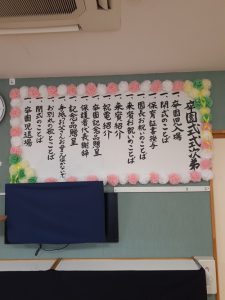 卒園式式次第
一、卒園児入場
一、開式のことば
一、保育証書授与
一、園長お祝いのことば
一、来賓お祝いのことば
一、来賓紹介
一、祝電紹介
一、卒園記念品贈呈
一、保護者代表謝辞
一、記念品贈呈
一、手紙「お父さんお母さんきいて」
一、お別れの歌とことば
一、閉式のことば
一、卒園児退場